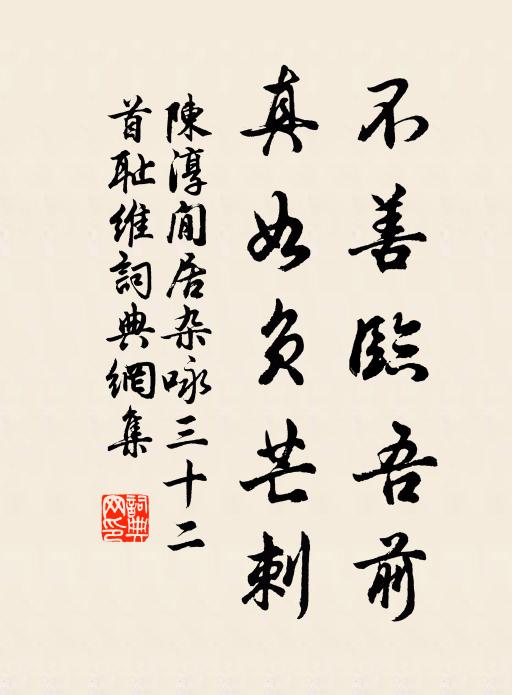 不善臨吾前
真如負芒刺
陳淳閒居杂咏三十二
首耻維詞典網集
詞典
网印